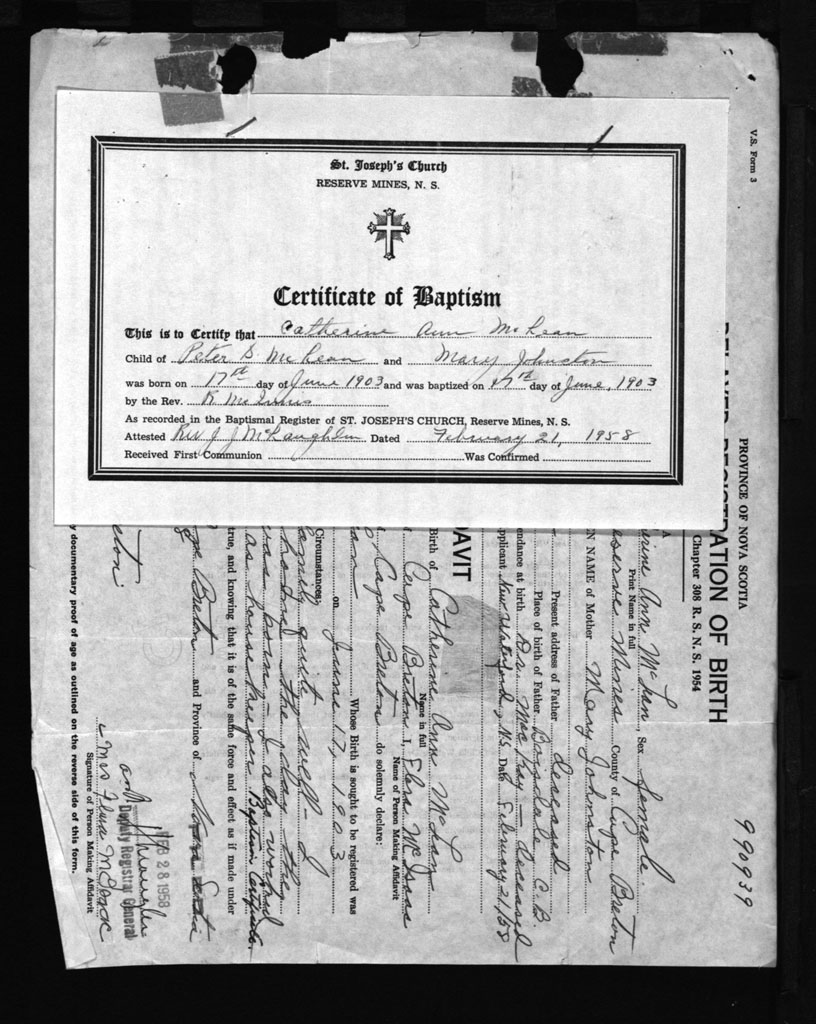 St. Joseph's Church
RESERVE MINES, N. S.
Certificate of Baptism
This is to Certify that Catherine Ann McLean
Child of Peter McLean and Mary Johnston
was born on 17th day of June 1903 and was baptized on 17th day of June, 1903
by the Rev. R McInnis
As recorded in the Baptismal Register of ST. JOSEPH'S CHURCH, Reserve Mines, N. S.
Attested Rev J J McLaughlin Dated February 21, 1958
Received First Communion Was Confirmed
V.S. Form 3
990939
PROVINCE OF NOVA SCOTIA
REGISTRATION OF BIRTH
Chapter 308 R. S. N. S. 1954
Ann McLean Sex female.
Print Name in full
Reserve Mines County of Cape Breton
NAME of Mother Mary Johnston
Present address of Father deceased
Place of birth of Father C. B.
at birth Dr. MacKay – deceased
New Waterford, N.S. Date February 21/58
Birth of Catherine Ann McLean
Name in full
Cape Breton I,
Name of Person Making Affidavit
Cape Breton do solemnly declare:
Whose Birth is sought to be registered was
on June 17, 1903
Circumstances
family quite well – I
the day the
was born – I also worked
as housekeeper Baptism Certificate.
true, and knowing that it is of the same force and effect as if made under
Breton and Province of Nova Scotia
28 1958
Deputy Registrar General
Mrs
Signature of Person Making Affidavit
documentary proof of age as outlined on the reverse side of this form.